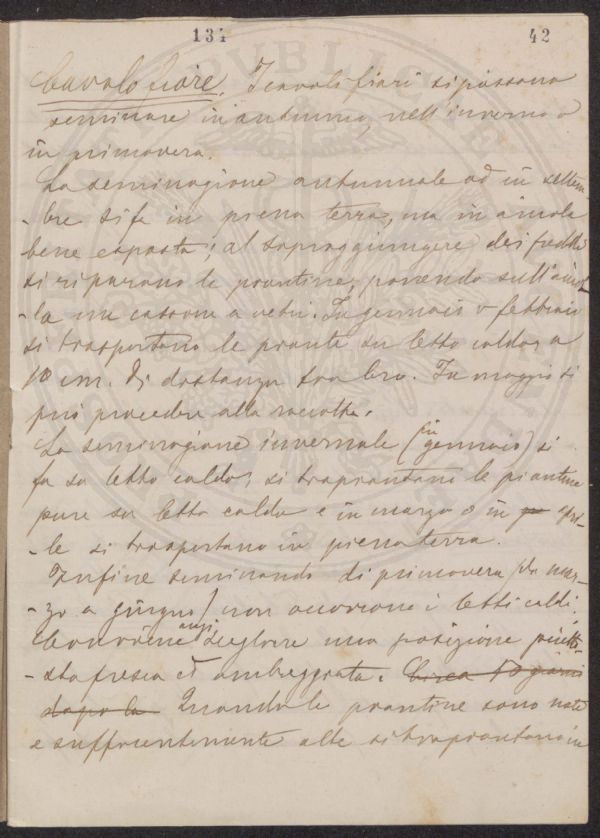 134 42
Cavolo fiore. I cavoli fiori si possono
seminare in autunno, nell'inverno o
in primavera.
La seminagione autunnale od in settem
-bre si fa in piena terra, ma in aiuola
bene esposta; al sopraggiungere dei freddi
si riparano le piantine, ponendo sull'aiuo
-la un cassone a vetri. In gennaio o febbraio
si trasportano le piante su letto caldo, a
10 cm. di distanza tra loro. In maggio si
può procedere alla raccolta.
La seminagione invernale (in gennaio) si
fa su letto caldo; si trapiantano le piantine
pure su letto caldo e in marzo o in apri-
-le si trasportano in piena terra.
Infine seminando di primavera (da mar-
-zo a giugno) non occorrono i letti caldi.
Conviene anzi scegliere una posizione piutto
-sto fresca ed ombreggiata. Circa 10 giorni
dopo la Quando le piantine sono nate
e sufficientemente alte si trapiantano in